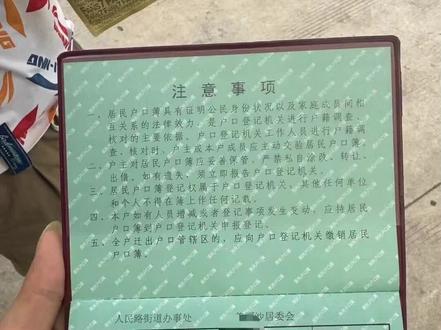 注意事项
一、居民户口簿具有证明公民身份状况以及家庭成员间相
互关系的法律效力，是户口登记机关进行户籍调查、
核对的主要依据。户口登记机关工作人员进行户籍调
查、核对时，户主或本户成员应主动交验居民户口簿。
二、户主对居民户口簿应妥善保管，严禁私自涂改、转让、
出借。如有遗失，须立即报告户口登记机关。
三、居民户口簿登记权属于户口登记机关，其他任何单位
和个人不得在簿上作任何记载。
四、本户如有人员增减或者登记事项发生变动，应持居民
户口簿到户口登记机关申报登记。
五、全户迁出户口管辖区的，应向户口登记机关缴销居民
户口簿。
人民路街道办事处
沙居委会